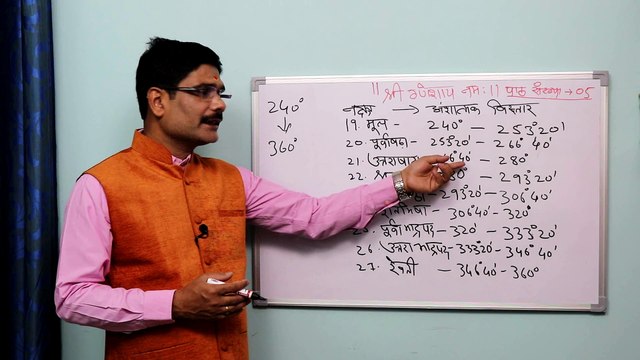 ॥ श्री गणेशाय नमः॥ पाठ संख्या → 05
240°
↓
360°
नक्षत्र → अंशात्मक विस्तार
19. मूल - 240° - 253°20'
20. पूर्वाषाढा - 253°20' - 266°40'
21. उत्तराषाढा 40' - 280°
22. - 293°20'
- 293°20' - 306°40'
- 306°40' - 320°
पूर्वाभाद्रपद - 320° - 333°20'
26. उत्तराभाद्रपद - 333°20' - 346°40'
27. रेवती - 346°40' - 360°